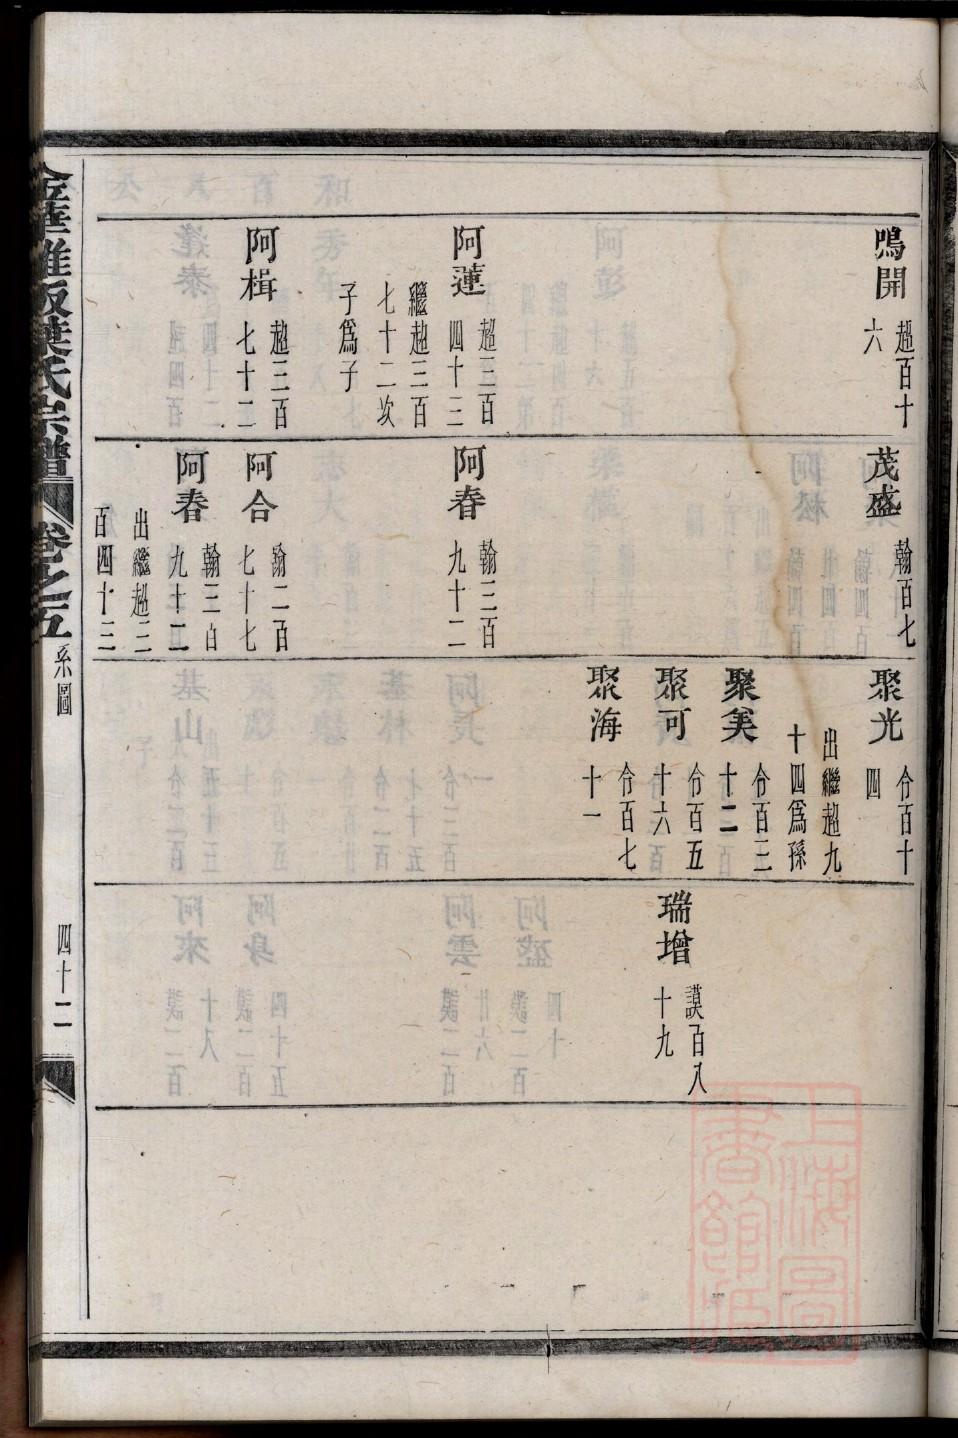 鳴開
超百十
六
阿蓮
超三百
四十三
繼超三百
七十二次
子爲子
阿楫
超三百
七十二
茂盛
翰百七
阿春
翰三百
九十二
阿合
翰二百
七十七
阿春
翰三百
九十二
出繼超三
百四十三
聚光
令百十
四
出繼超九
十四爲孫
聚美
令百三
十二
聚可
令百五
十六
聚海
令百七
十一
瑞增
謨百八
十九
金華雅畈葉氏宗譜
卷之五
系圖
四十二
上海圖
書館藏